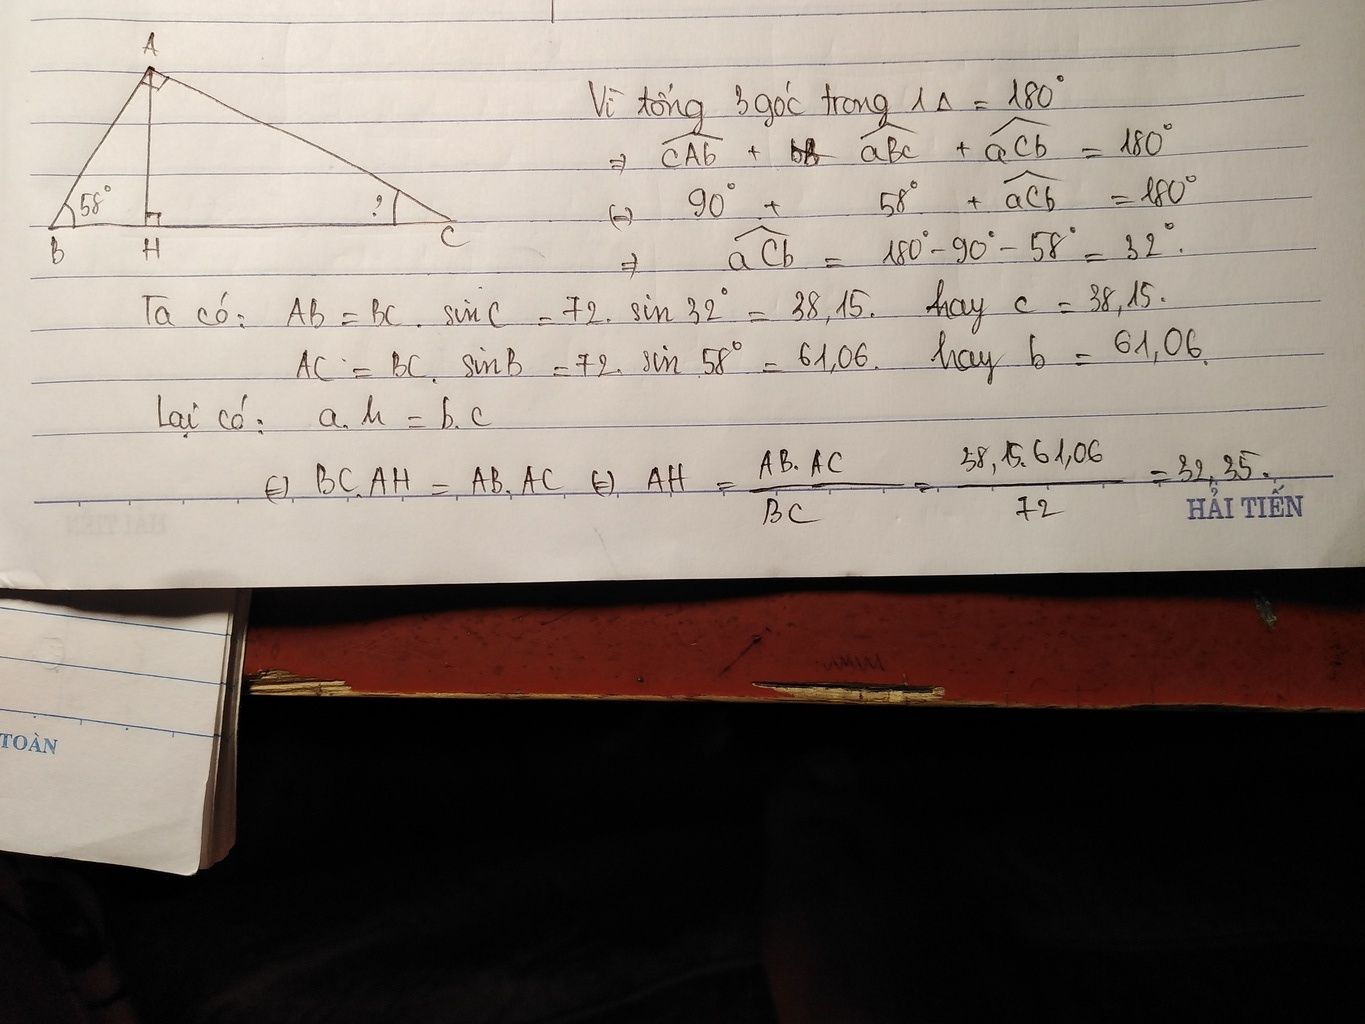 A
58°
?
B
H
C
Vì tổng 3 góc trong 1 Δ = 180°
⇒ cAb + aBc + aCb = 180°
(=) 90° + 58° + aCb = 180°
⇒ aCb = 180° - 90° - 58° = 32°.
Ta có: AB = BC . sin C = 72. sin 32° = 38,15. hay c = 38,15.
AC = BC. sin B = 72. sin 58° = 61,06. hay b = 61,06.
Lại có: a.h = b.c
(=) BC.AH = AB.AC (=) AH = AB.AC / BC = 38,15.61,06 / 72 = 32,35.
HẢI TIẾN
TOÀN